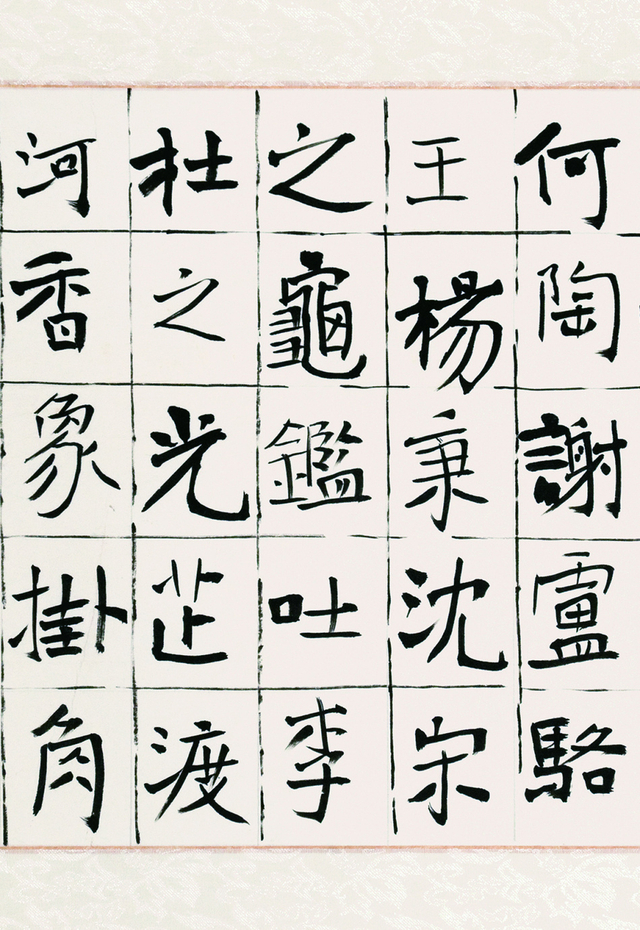 何陶謝盧駱
王楊秉沈宋
之龜鑑吐李
杜之光芒渡
河香象掛角